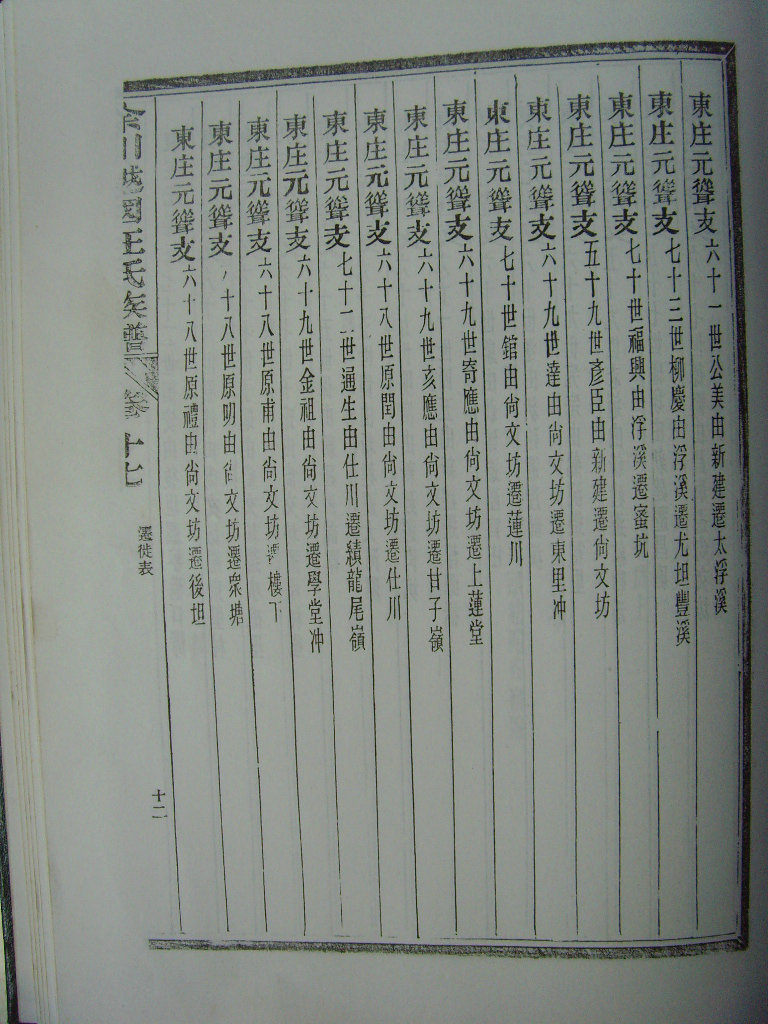 東庄元聳支六十一世公美由新建遷太浮溪
東庄元聳支七十三世柳慶由浮溪遷尤坦豐溪
東庄元聳支七十世福興由浮溪遷蜜坑
東庄元聳支五十九世彥臣由新建遷尙文坊
東庄元聳支六十九世達由尙文坊遷東里冲
東庄元聳支七十世錧由尙文坊遷蓮川
東庄元聳支六十九世寄應由尙文坊遷上蓮堂
東庄元聳支六十九世亥應由尙文坊遷甘子嶺
東庄元聳支六十八世原閏由尙文坊遷仕川
東庄元聳支七十二世通生由仕川遷績龍尾嶺
東庄元聳支六十九世金祖由尙文坊遷學堂冲
東庄元聳支六十八世原甫由尙文坊遷樓下
東庄元聳支十八世原明由尙文坊遷衆塘
東庄元聳支六十八世原禮由尙文坊遷後坦
川越國王氏矦譜
卷十七
遷徙表
十二